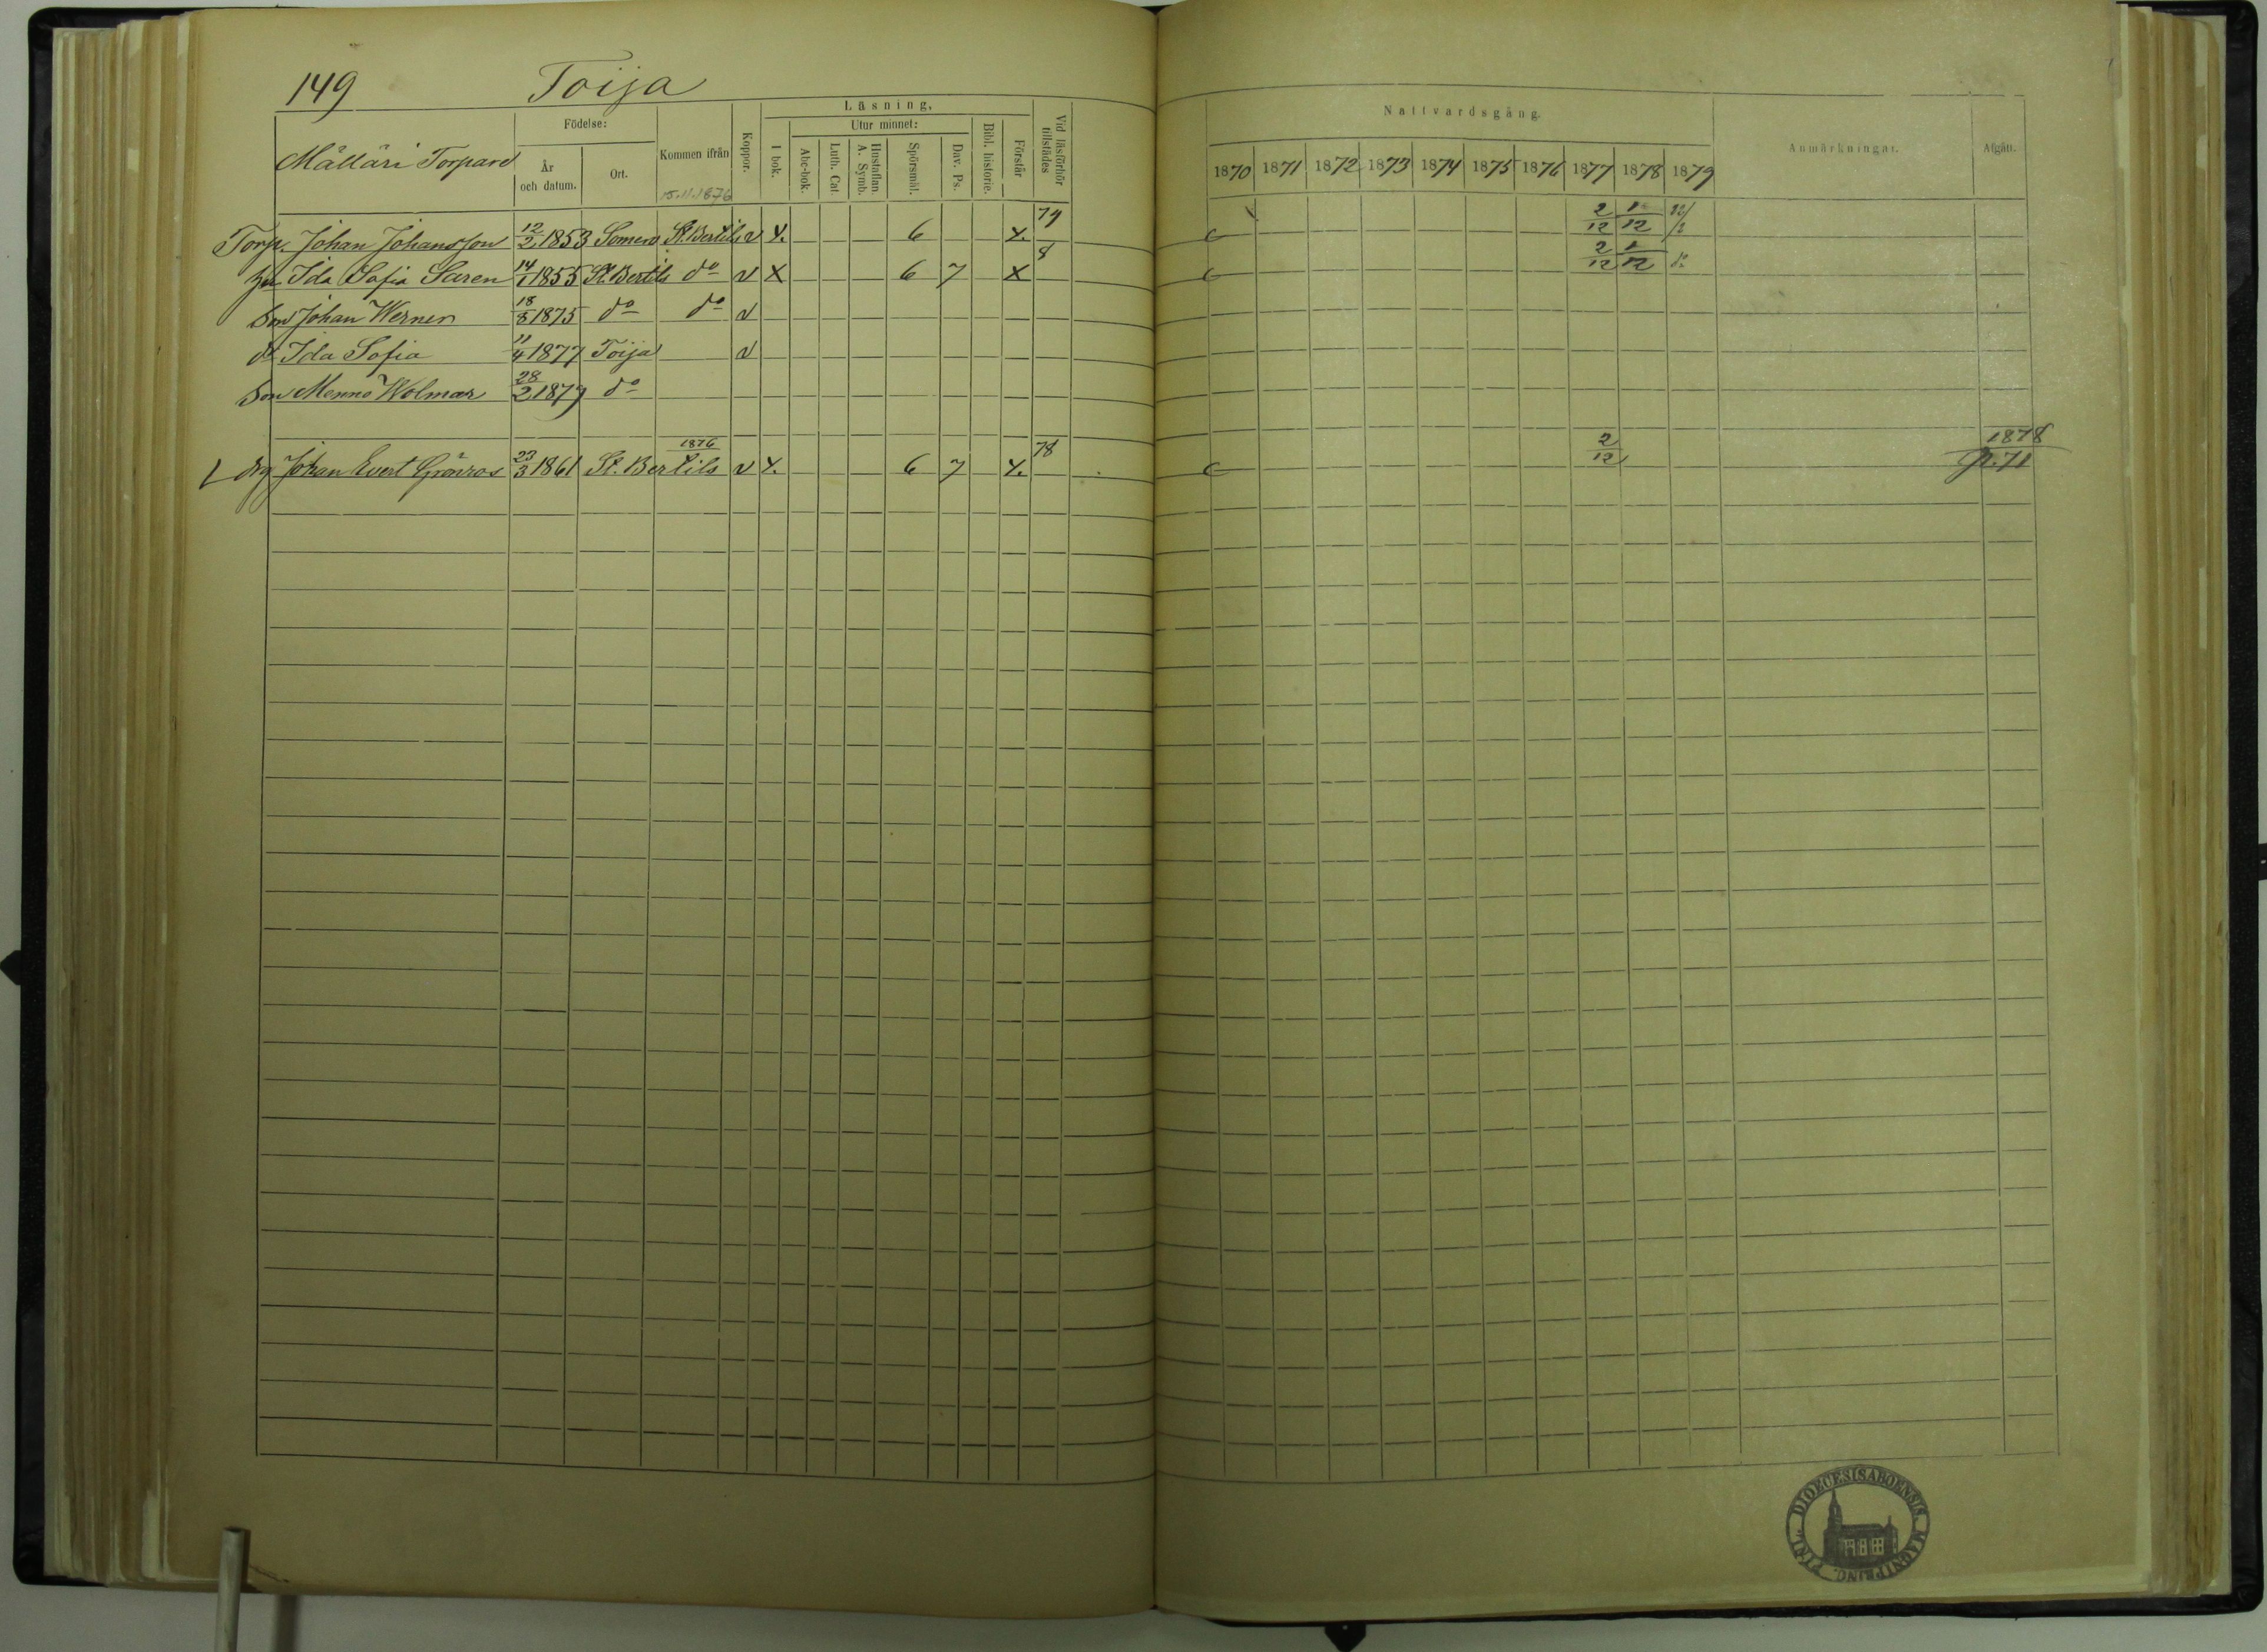 149 Toija
Läsning. Nattvardsgång.
Födelse: Utur minnet:
Mälläri Torpare År och datum. Ort. Kommen ifrån Koppor. I bok. Abc-bok. Luth. Cat. Hustaflan. A. Symb. Spörsmål. Dav. Ps. Bibl. historie. Förstår Vid läsförhör tillstädes 1870 1871 1872 1873 1874 1875 1876 1877 1878 1879 Anmärkningar. Afgått.
15.11.1876
Torp. Johan Johansson 12/2 1853 Somero St. Bertils v x. 6 x. 79 2/12 1/12
Ida Sofia Saren 14/1 1855 St. Bertils do v x 6 7 x 8 2/12 1/12 do
Son Johan Werner 18/8 1875 do do v
dr Ida Sofia 11/4 1877 Toija v
Son Menno Wolmar 28/2 1879 do
1876 78 1878
drg Johan Evert Grönroos 23/3 1861 St. Bertils v x. 6 7 x. 2/12 p. 71
DIOECESIS ABOENSIS. MAGNI PRINC. FINL.